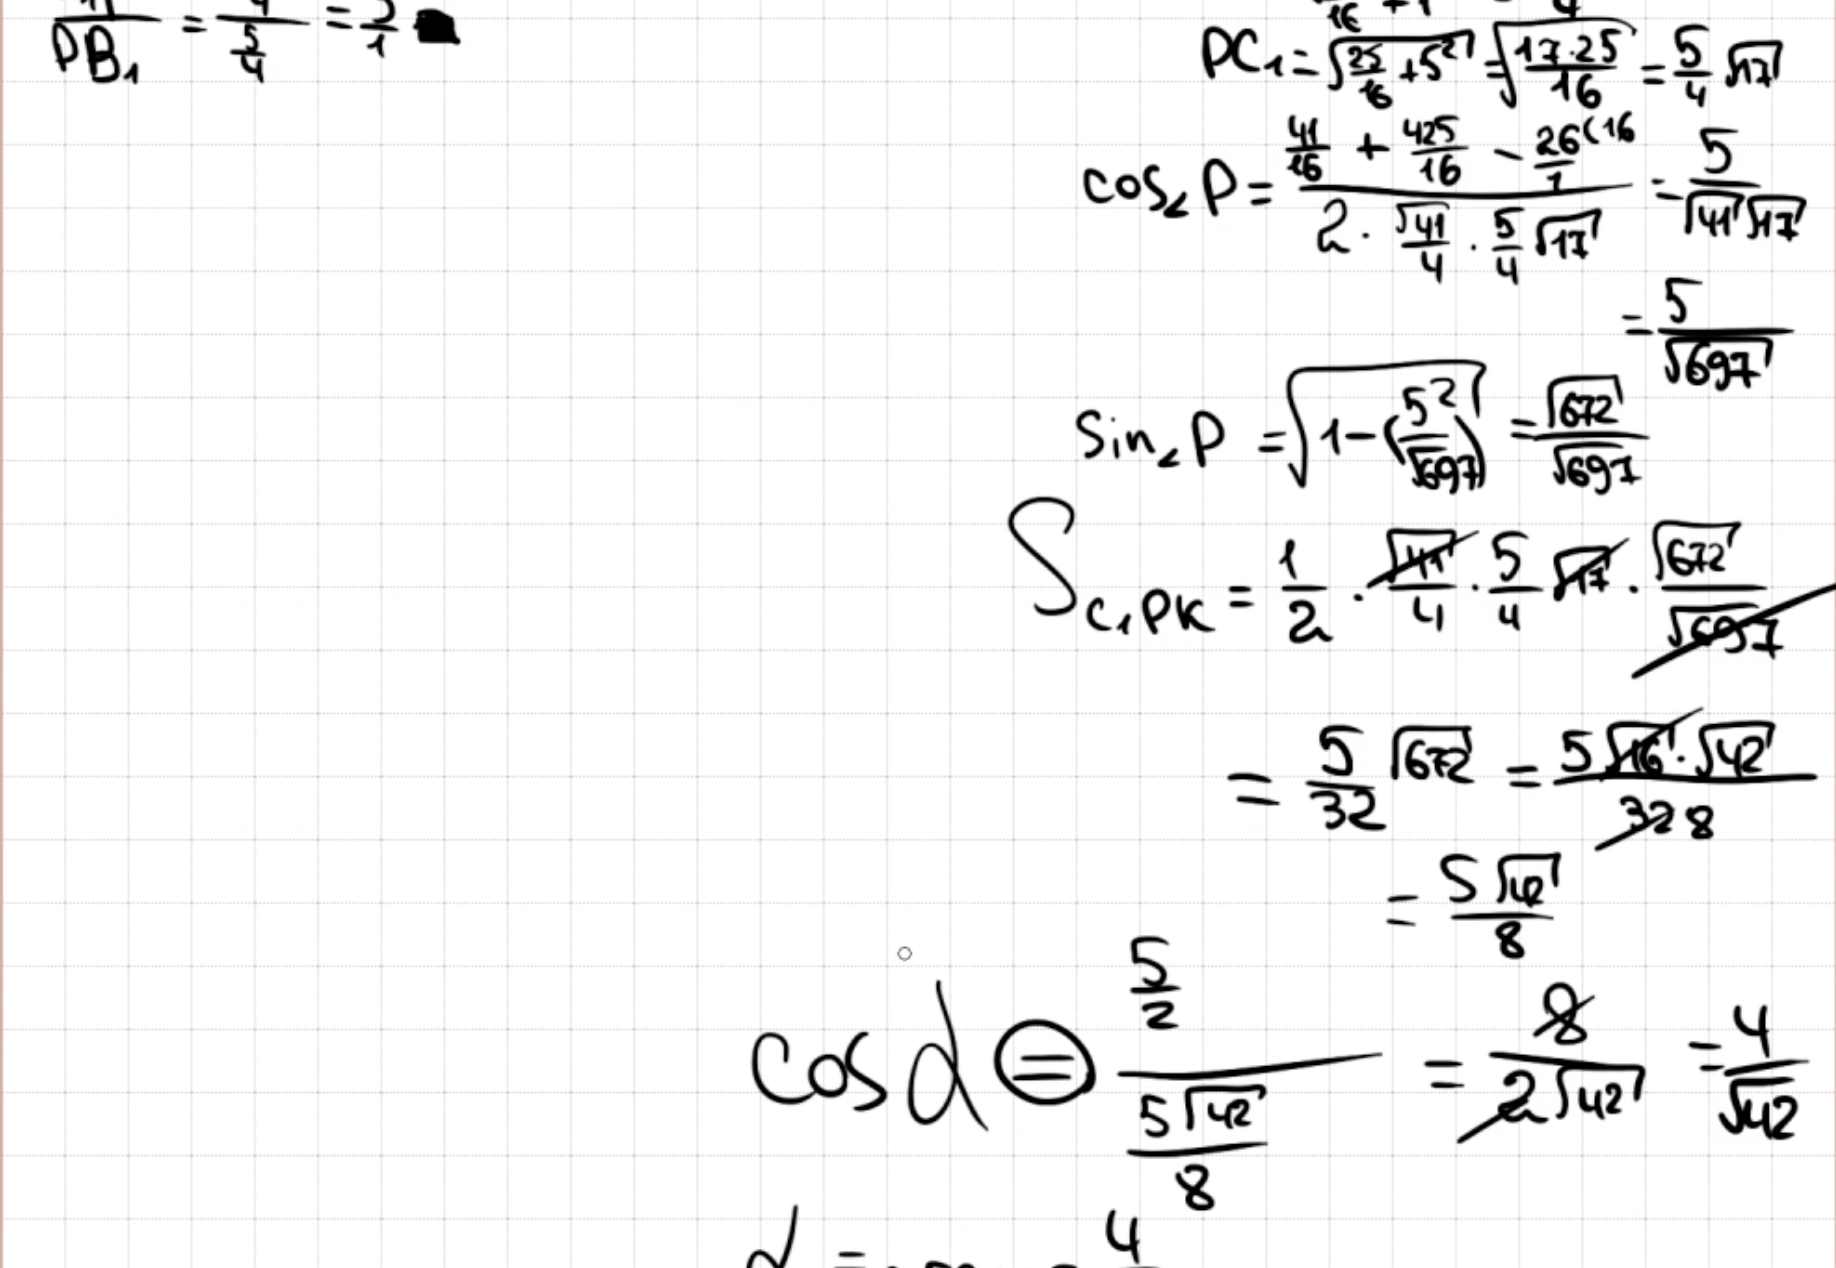 PB₁ = 5/4 = 3/1
PC₁ = √(25/16 + 5²) = √(17·25/16) = 5/4 √17
cos∠P = (41/16 + 425/16 − 26/1 (16) / (2 · √41/4 · 5/4 √17) = 5/(√41 √17)
= 5/√697
sin∠P = √(1 − (5/√697)²) = √672/√697
S C₁PK = 1/2 · √41/4 · 5/4 √17 · √672/√697
= 5/32 √672 = 5√16 · √42 / 32 8
= 5√42/8
cos α = (5/2)/(5√42/8) = 8/(2√42) = 4/√42
α = 4